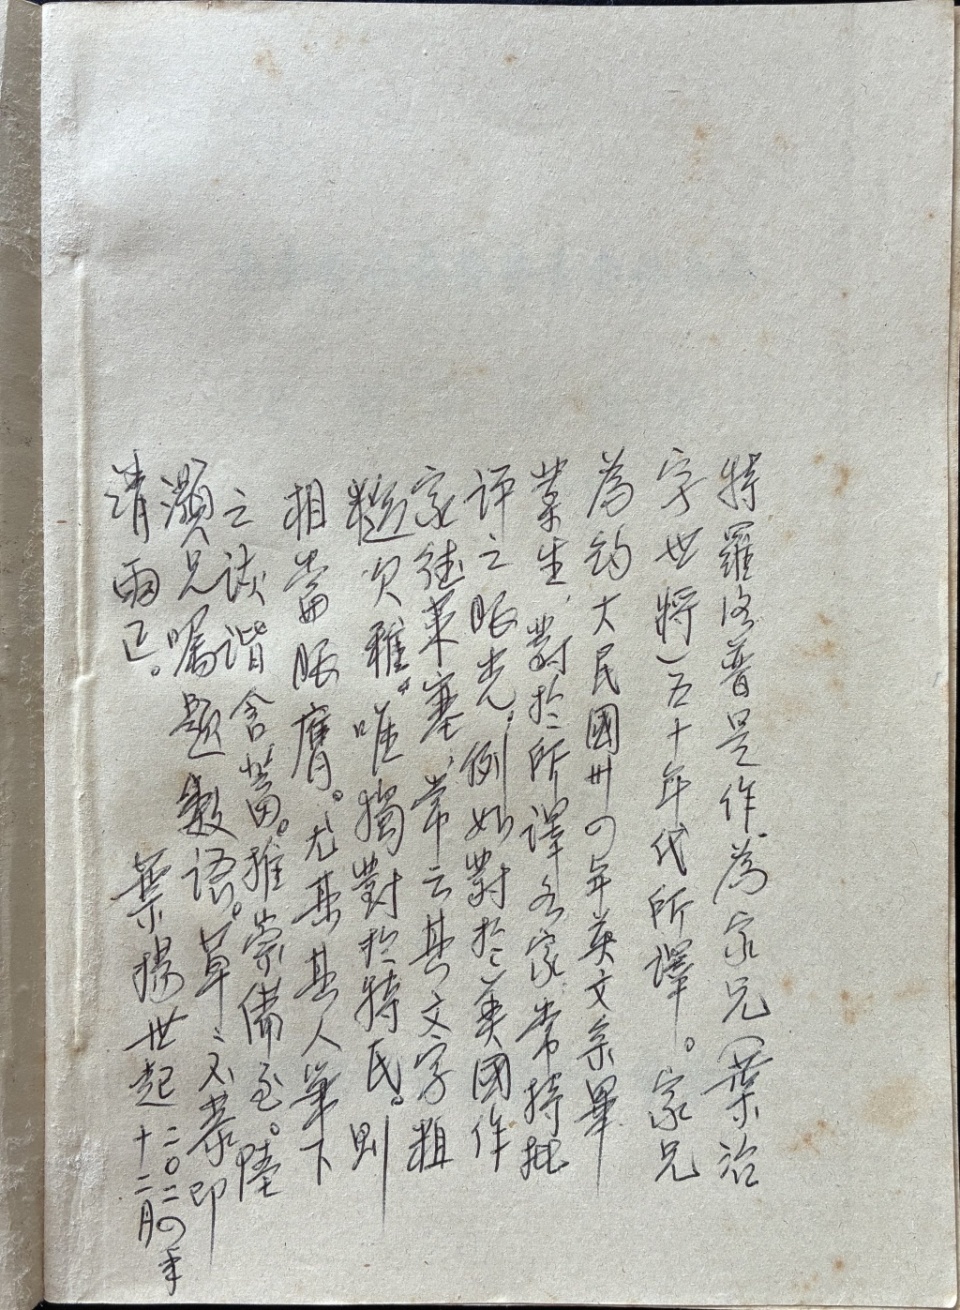 特羅洛普是作為家兄（葉治
字世將）五十年代所譯。家兄
為約大民國卅四年英文系畢
業生，對於所譯名家常持批
評之眼光，例如對於英國作
家德萊塞，常云其文字粗
糙欠雅，唯獨對於特氏。則
相當眼膺。尤其其人筆下
之詼諧含蓄。推崇備至。陸
灝兄囑題數語。草之不恭即
請雨正。
葉揚世起
二〇二四年
十二月